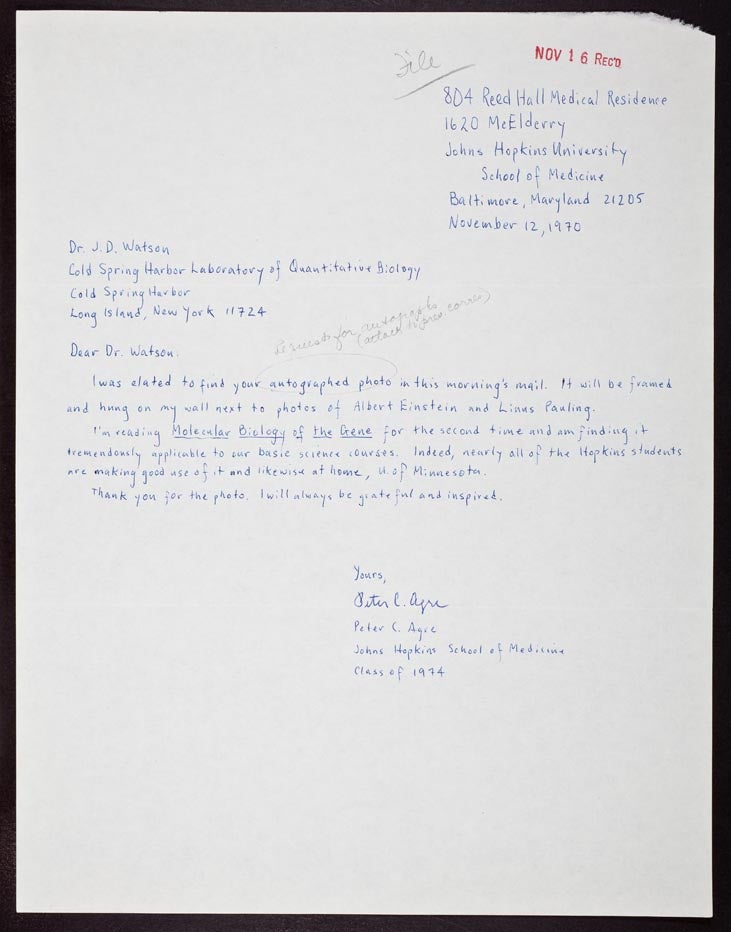 File
NOV 16 REC'D
804 Reed Hall Medical Residence
1620 McElderry
Johns Hopkins University
School of Medicine
Baltimore, Maryland 21205
November 12, 1970
Dr. J. D. Watson
Cold Spring Harbor Laboratory of Quantitative Biology
Cold Spring Harbor
Long Island, New York 11724
Requests for autographs
(attach to prev. corres)
Dear Dr. Watson:
I was elated to find your autographed photo in this morning's mail. It will be framed
and hung on my wall next to photos of Albert Einstein and Linus Pauling.
I'm reading Molecular Biology of the Gene for the second time and am finding it
tremendously applicable to our basic science courses. Indeed, nearly all of the Hopkins students
are making good use of it and likewise at home, U. of Minnesota.
Thank you for the photo. I will always be grateful and inspired.
Yours,
Peter C. Agre
Peter C. Agre
Johns Hopkins School of Medicine
Class of 1974